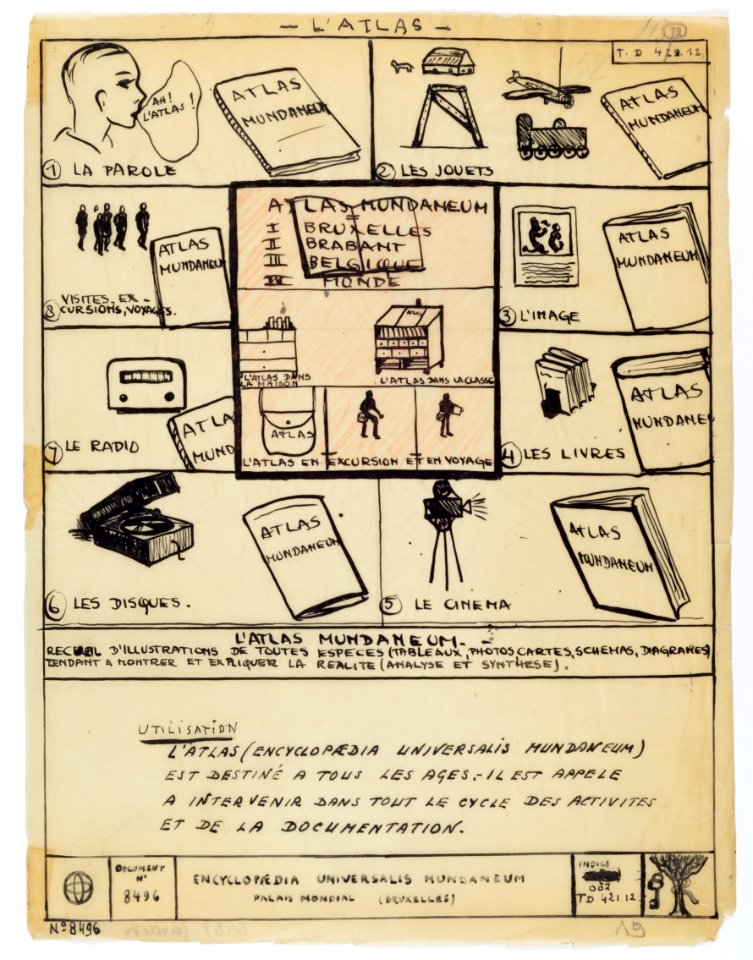 - L'ATLAS -
12
T. D 421.12
AH!
L'ATLAS!
ATLAS
MUNDANEUM
1 LA PAROLE
ATLAS
MUNDANEUM
2 LES JOUETS
ATLAS
MUNDANEUM
8 VISITES, EX-
CURSIONS, VOYAGES.
ATLAS MUNDANEUM
I BRUXELLES
II BRABANT
III BELGIQUE
IV MONDE
L'ATLAS DANS
LA MAISON
L'ATLAS DANS LA CLASSE
ATLAS
L'ATLAS EN EXCURSION ET EN VOYAGE
ATLAS
MUNDANEUM
3 L'IMAGE
ATLA
MUND
7 LE RADIO
ATLAS
MUNDANEU
4 LES LIVRES
ATLAS
MUNDANEUM
6 LES DISQUES.
ATLAS
MUNDANEUM
5 LE CINEMA
L'ATLAS MUNDANEUM. -
RECUEIL D'ILLUSTRATIONS DE TOUTES ESPECES (TABLEAUX, PHOTOS CARTES, SCHEMAS, DIAGRAMES)
TENDANT A MONTRER ET EXPLIQUER LA REALITE (ANALYSE ET SYNTHESE).
UTILISATION
L'ATLAS (ENCYCLOPÆDIA UNIVERSALIS MUNDANEUM)
EST DESTINÉ A TOUS LES AGES. - IL EST APPELE
A INTERVENIR DANS TOUT LE CYCLE DES ACTIVITES
ET DE LA DOCUMENTATION.
DOCUMENT
N°
8496
ENCYCLOPÆDIA UNIVERSALIS MUNDANEUM
PALAIS MONDIAL (BRUXELLES)
INDICE
002
TD 421.12
N° 8496
19